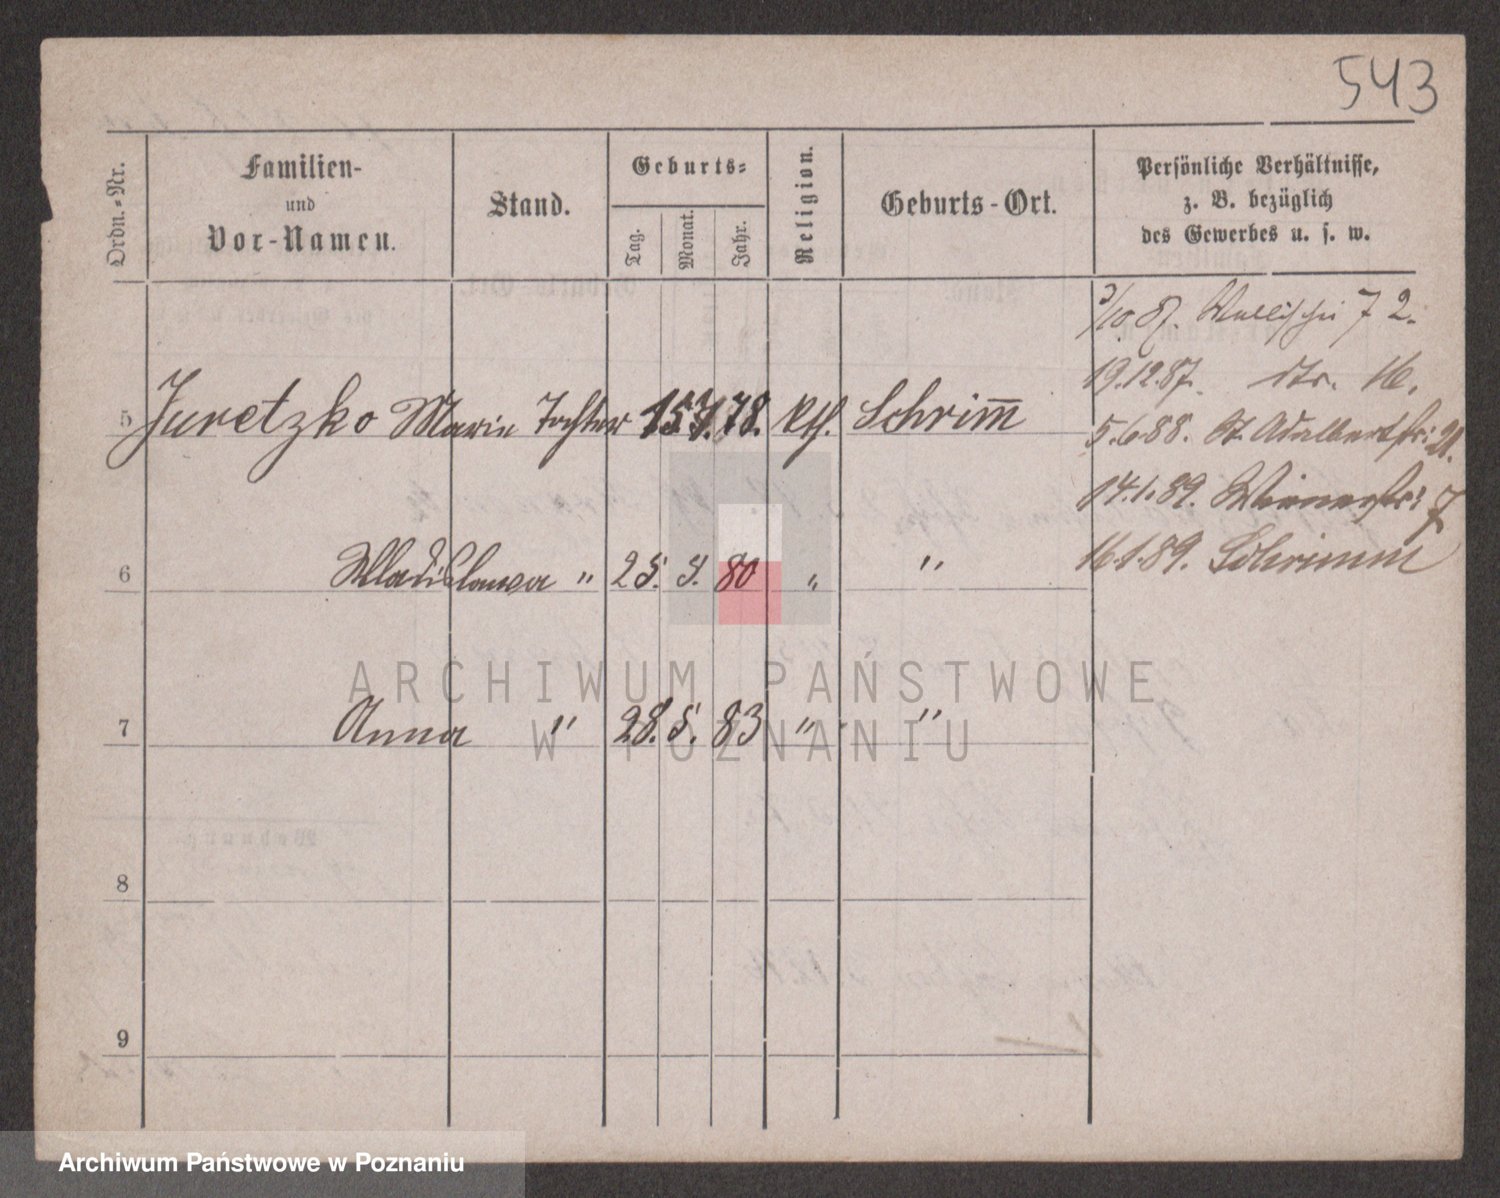 543
Ordn.-Nr.
Familien-
und
Vor-Namen.
Stand.
Geburts-
Tag.
Monat.
Jahr.
Religion.
Geburts-Ort.
Persönliche Verhältnisse,
z. B. bezüglich
des Gewerbes u. s. w.
3/10 87. Wallischei 72.
19.12.87. dto. 16.
5 Juretzko Marie Tochter 15 7. 78. kth. Schrim̅
5.6.88. St. Adalbertstr. 21.
14.1.89. Wienerstr. 7
6 Wladislawa " 25. 5. 80 " "
16.1.89. Schrimm
7 Anna " 28. 5. 83 " "
8
9
ARCHIWUM PAŃSTWOWE
W POZNANIU
Archiwum Państwowe w Poznaniu